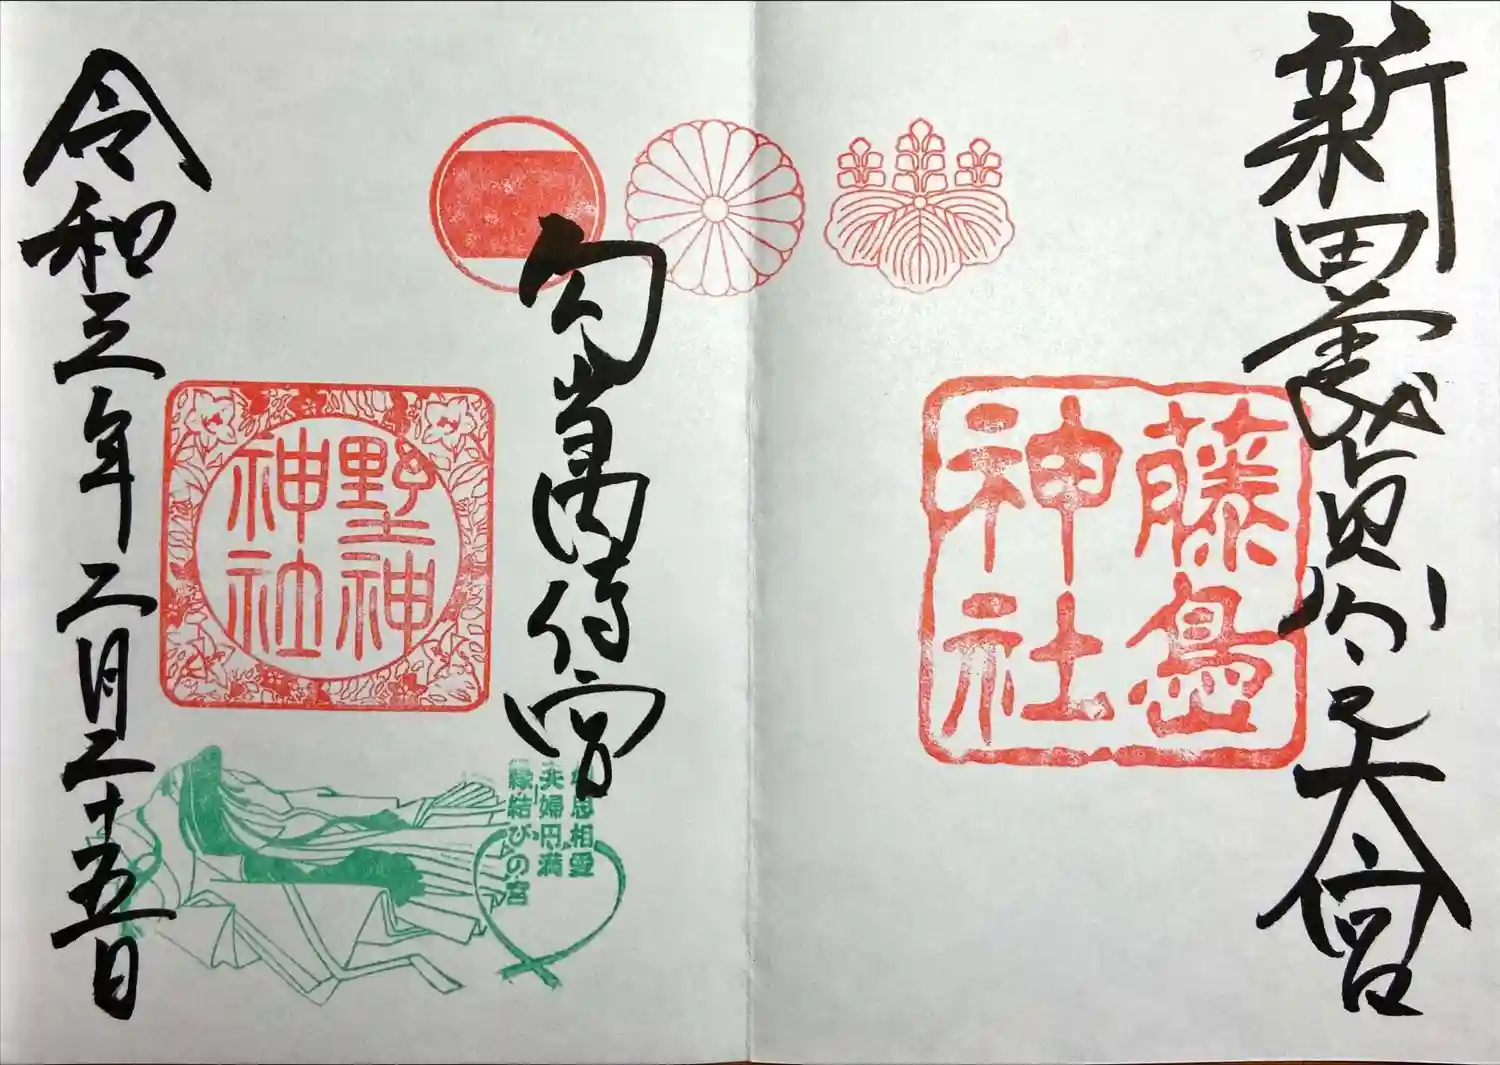 新田義貞公之大宮
藤島
神社
勾當内侍宮
野神
神社
相思相愛
夫婦円満
縁結びの宮
令和三年二月二十五日